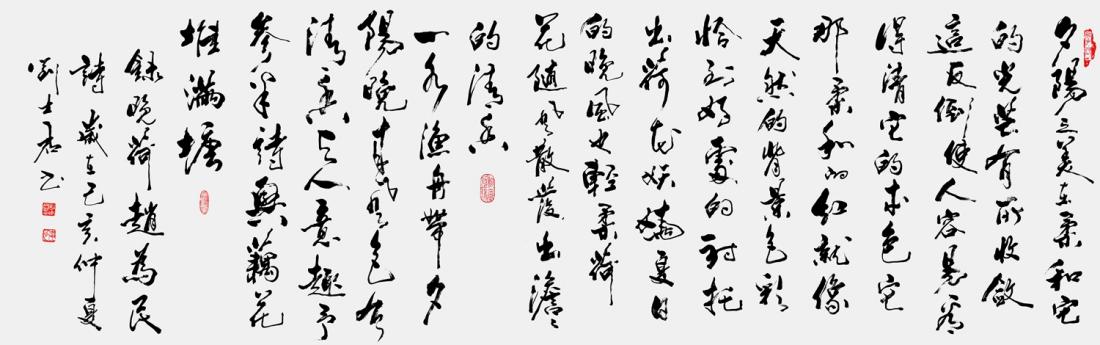 夕陽之美在柔和它
的光芒有所收斂
這反倒使人容易看
得清它的本色它
那柔和的紅就像
天然的背景色彩
恰到好處的襯托
出荷花妖嬈夏日
的晚風也輕柔荷
花隨風散發出澹澹
的清香
一水漁舟帶夕
陽晚來風色有
清香與人意趣予
參半詩興藕花
堆滿塘
錄晚荷趙為民
詩歲在己亥仲夏
劉士君書